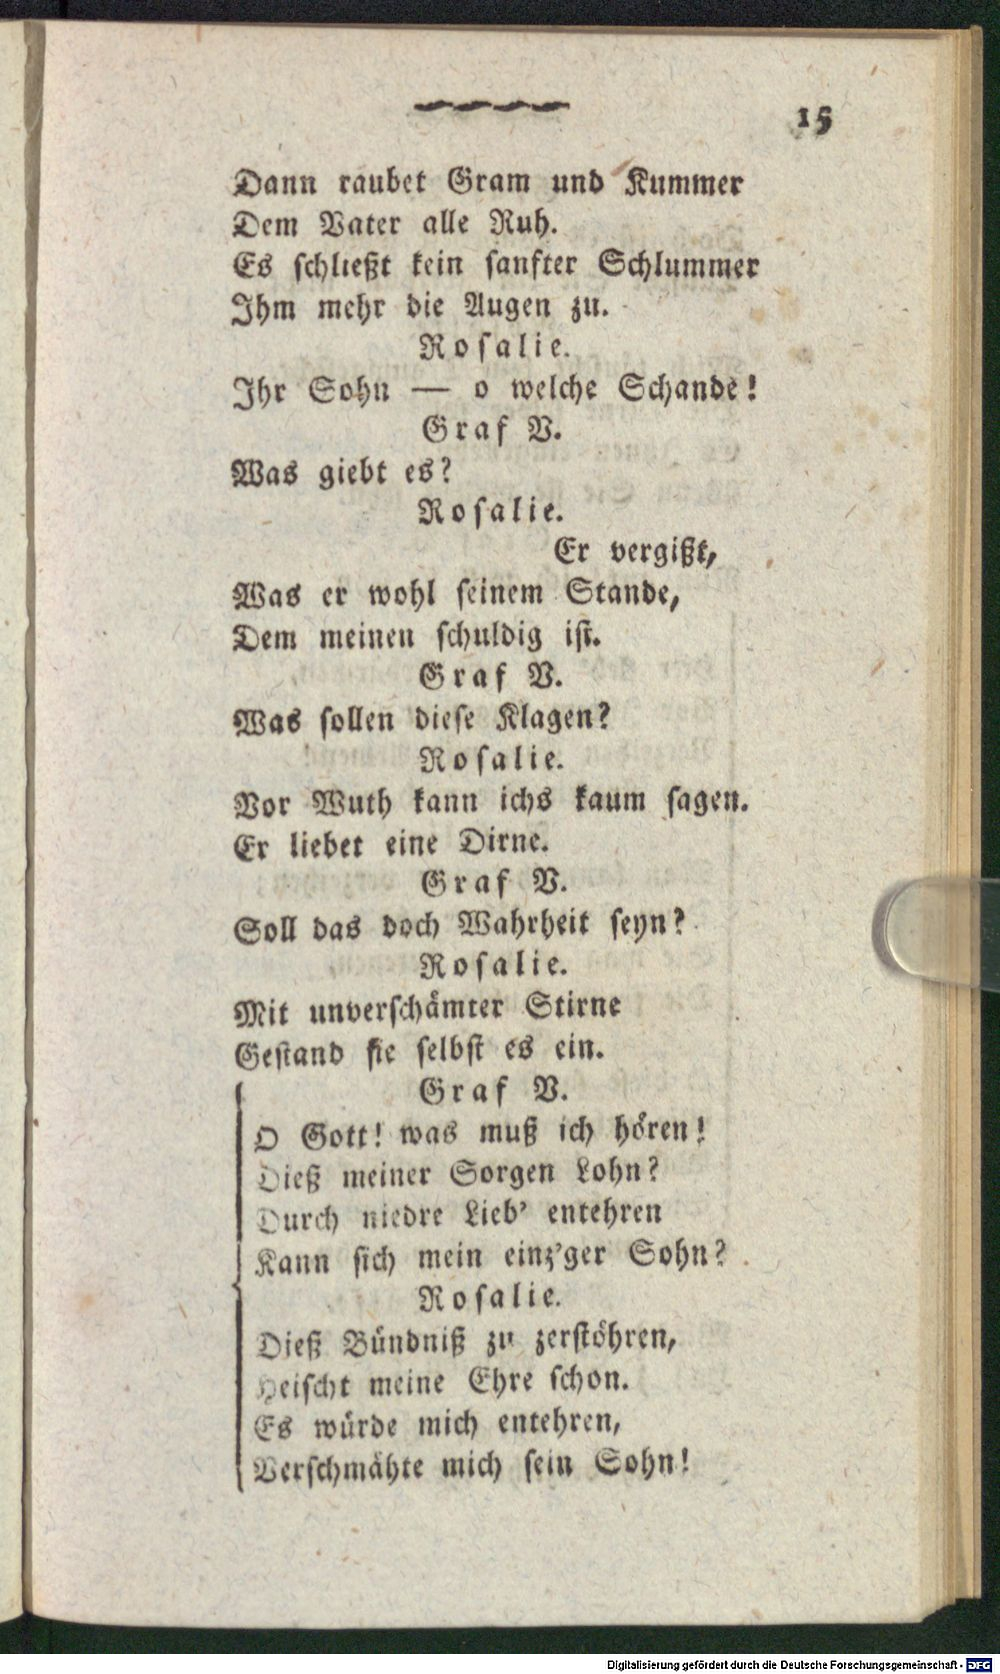 15
Dann raubet Gram und Kummer
Dem Vater alle Ruh.
Es schließt kein sanfter Schlummer
Ihm mehr die Augen zu.
Rosalie.
Ihr Sohn — o welche Schande!
Graf V.
Was giebt es?
Rosalie.
Er vergißt,
Was er wohl seinem Stande,
Dem meinen schuldig ist.
Graf V.
Was sollen diese Klagen?
Rosalie.
Vor Wuth kann ichs kaum sagen.
Er liebet eine Dirne.
Graf V.
Soll das doch Wahrheit seyn?
Rosalie.
Mit unverschämter Stirne
Gestand sie selbst es ein.
Graf V.
O Gott! was muß ich hören!
Dieß meiner Sorgen Lohn?
Durch niedre Lieb' entehren
Kann sich mein einz'ger Sohn?
Rosalie.
Dieß Bündniß zu zerstöhren,
Heischt meine Ehre schon.
Es würde mich entehren,
Verschmähte mich sein Sohn!
Digitalisierung gefördert durch die Deutsche Forschungsgemeinschaft - DFG